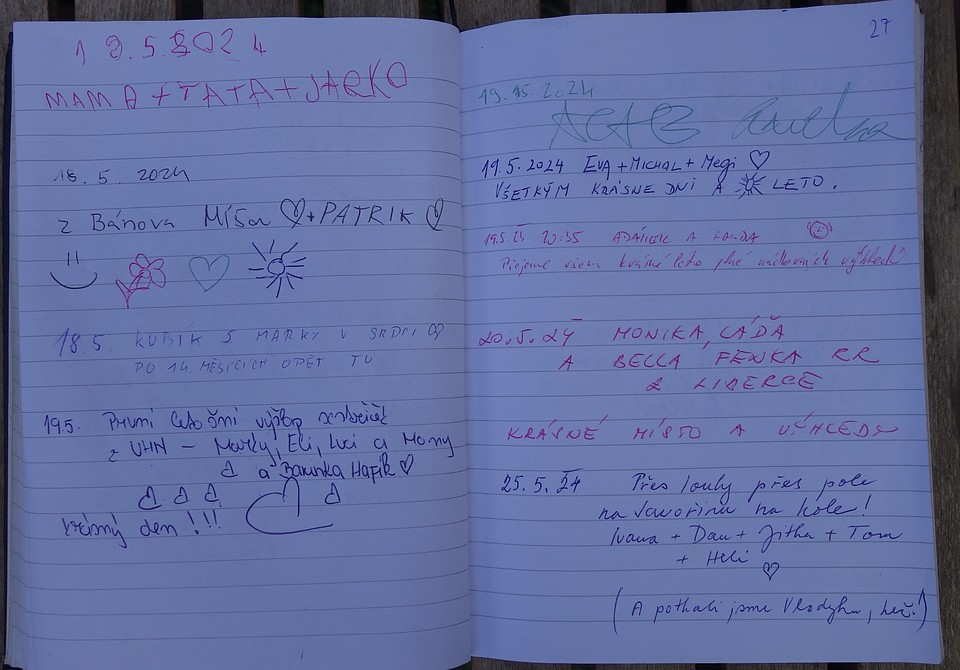 18.5.2024
MAMA + TATA + JARKO
18. 5. 2024
z Bánova Míša + PATRIK
18.5 KUBÍK S MARKY V SRDCI
PO 14. MĚSÍCÍCH OPĚT TU
19.5. První letošní výšlap
z UHN – Marky, Eli, Luci a Mony
a Barunka Hafík
krásný den !!!
27
19. 2024
19.5.2024 EVA + MICHAL + Megi
VŠETKÝM KRÁSNE DNI A LETO.
19.5. 20:55 ADÁMEK A
Přejeme všem krásné léto plné výhledů
20.5.24 MONIKA, LÁĎA
A BELLA FENKA RR
Z LIBERCE
KRÁSNÉ MÍSTO A VÝHLEDY
25.5.24 Přes louky přes pole
na Javorinu na kole!
Ivana + Dan + Jitka + Tom
+ Heli
(A potkali jsme Vladyku, heč!)